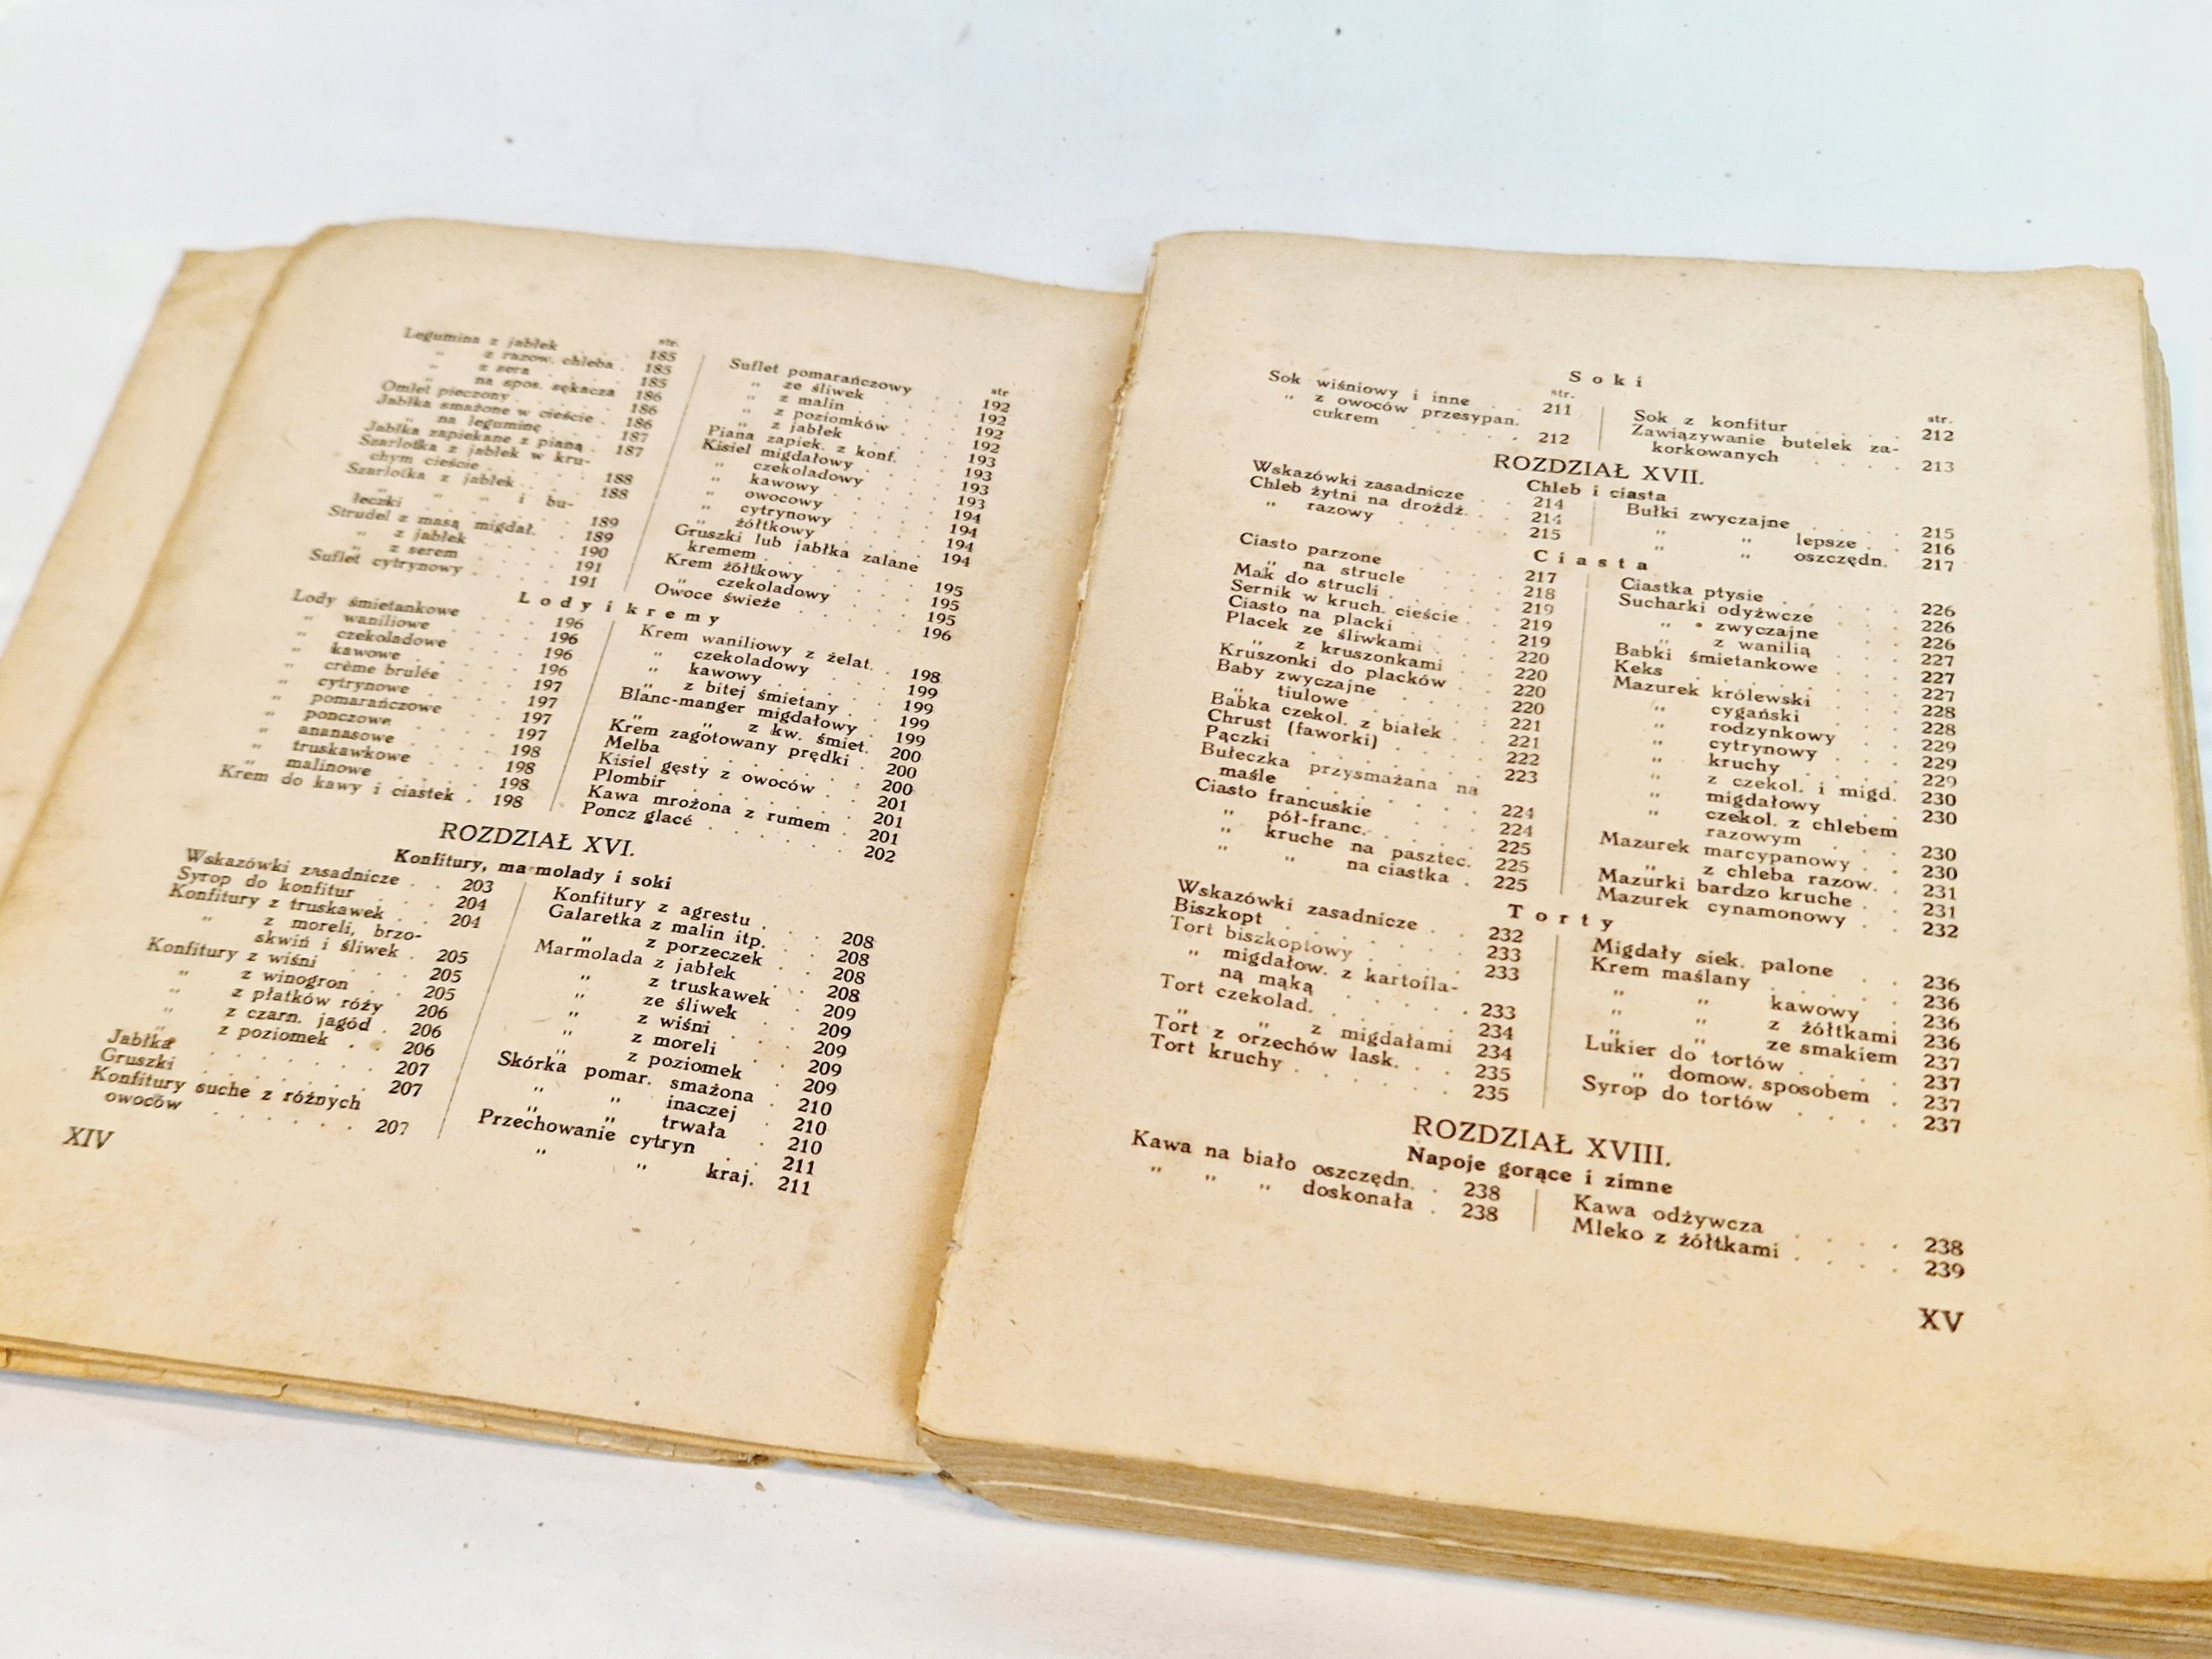 str.
Legumina z jabłek . 185
„ z razow. chleba . 185
„ z sera . . . 185
„ na spos. sękacza 186
Omlet pieczony . . . 186
Jabłka smażone w cieście . 186
„ na leguminę . . . 187
Jabłka zapiekane z pianą . 187
Szarlotka z jabłek w kru-
chym cieście . . . . 188
Szarlotka z jabłek . . . 188
„ „ „ i bu-
łeczki . . . . . 189
Strudel z masą migdał. . 189
„ z jabłek . . . . 190
„ z serem . . . . 191
Suflet cytrynowy . . . . 191
str
Suflet pomarańczowy . . 192
„ ze śliwek . . . . 192
„ z malin . . . . 192
„ z poziomków . . . 192
„ z jabłek . . . . 193
Piana zapiek. z konf. . . 193
Kisiel migdałowy . . . . 193
„ czekoladowy . . . 193
„ kawowy . . . . 194
„ owocowy . . . . 194
„ cytrynowy . . . . 194
„ żółtkowy . . . . 194
Gruszki lub jabłka zalane
kremem . . . . . 195
Krem żółtkowy . . . . 195
„ czekoladowy . . . 195
Owoce świeże . . . . 196
Lody i kremy
Lody śmietankowe . . . 196
„ waniliowe . . . . 196
„ czekoladowe . . . 196
„ kawowe . . . . 196
„ crème brulée . . . 197
„ cytrynowe . . . . 197
„ pomarańczowe . . 197
„ ponczowe . . . . 197
„ ananasowe . . . . 198
„ truskawkowe . . . 198
„ malinowe . . . . 198
Krem do kawy i ciastek . 198
Krem waniliowy z żelat. . 198
„ czekoladowy . . . 199
„ kawowy . . . . 199
„ z bitej śmietany . . 199
Blanc-manger migdałowy . 199
„ „ z kw. śmiet. 200
Krem zagotowany prędki . 200
Melba . . . . . . 200
Kisiel gęsty z owoców . . 201
Plombir . . . . . . 201
Kawa mrożona z rumem . 201
Poncz glacé . . . . . 202
ROZDZIAŁ XVI.
Konfitury, ma molady i soki
Wskazówki zasadnicze . . 203
Syrop do konfitur . . . 204
Konfitury z truskawek . . 204
„ z moreli, brzo-
skwiń i śliwek . 205
Konfitury z wiśni . . . 205
„ z winogron . . 205
„ z płatków róży 206
„ z czarn. jagód . 206
„ z poziomek . . 206
Jabłka . . . . . . 207
Gruszki . . . . . . 207
Konfitury suche z różnych
owoców . . . . . . 207
Konfitury z agrestu . . . 208
Galaretka z malin itp. . . 208
„ z porzeczek . . 208
Marmolada z jabłek . . 208
„ z truskawek . 209
„ ze śliwek . . 209
„ z wiśni . . . 209
„ z moreli . . 209
„ z poziomek . 209
Skórka pomar. smażona . 210
„ „ inaczej . 210
„ „ trwała . 210
Przechowanie cytryn . . 211
„ „ kraj. 211
XIV
Soki
str.
Sok wiśniowy i inne . . 211
„ z owoców przesypan.
cukrem . . . . . 212
str.
Sok z konfitur . . . . 212
Zawiązywanie butelek za-
korkowanych . . . . 213
ROZDZIAŁ XVII.
Chleb i ciasta
Wskazówki zasadnicze . . 214
Chleb żytni na drożdż. . . 214
„ razowy . . . . . 215
Bułki zwyczajne . . . . 215
„ „ lepsze . . 216
„ „ oszczędn. 217
Ciasta
Ciasto parzone . . . . 217
„ na strucle . . . 218
Mak do strucli . . . . 219
Sernik w kruch. cieście . . 219
Ciasto na placki . . . . 219
Placek ze śliwkami . . . 220
„ z kruszonkami . . 220
Kruszonki do placków . . 220
Baby zwyczajne . . . . 220
„ tiulowe . . . . . 221
Babka czekol. z białek . . 221
Chrust (faworki) . . . . 222
Pączki . . . . . . 223
Bułeczka przysmażana na
maśle . . . . . . 224
Ciasto francuskie . . . 224
„ pół-franc. . . . . 225
„ kruche na pasztec. 225
„ „ na ciastka . 225
Ciastka ptysie . . . . . 226
Sucharki odyżwcze . . . 226
„ zwyczajne . . . 226
„ z wanilią . . . 227
Babki śmietankowe . . . 227
Keks . . . . . . . 227
Mazurek królewski . . . 228
„ cygański . . . 228
„ rodzynkowy . . 229
„ cytrynowy . . . 229
„ kruchy . . . . 229
„ z czekol. i migd. 230
„ migdałowy . . 230
„ czekol. z chlebem
razowym . . . 230
Mazurek marcypanowy . . 230
„ z chleba razow. . 231
Mazurki bardzo kruche . . 231
Mazurek cynamonowy . . 232
Torty
Wskazówki zasadnicze . . 232
Biszkopt . . . . . . 233
Tort biszkoptowy . . . . 233
„ migdałow. z kartofla-
ną mąką . . . . . 233
Tort czekolad. . . . . 234
„ „ z migdałami 234
Tort z orzechów lask. . . 235
Tort kruchy . . . . . . 235
Migdały siek. palone . . 236
Krem maślany . . . . . 236
„ „ kawowy . 236
„ „ z żółtkami 236
„ „ ze smakiem 237
Lukier do tortów . . . . 237
„ domow. sposobem . 237
Syrop do tortów . . . . 237
ROZDZIAŁ XVIII.
Napoje gorące i zimne
Kawa na biało oszczędn. . 238
„ „ „ doskonała . 238
Kawa odżywcza . . . . 238
Mleko z żółtkami . . . . 239
XV